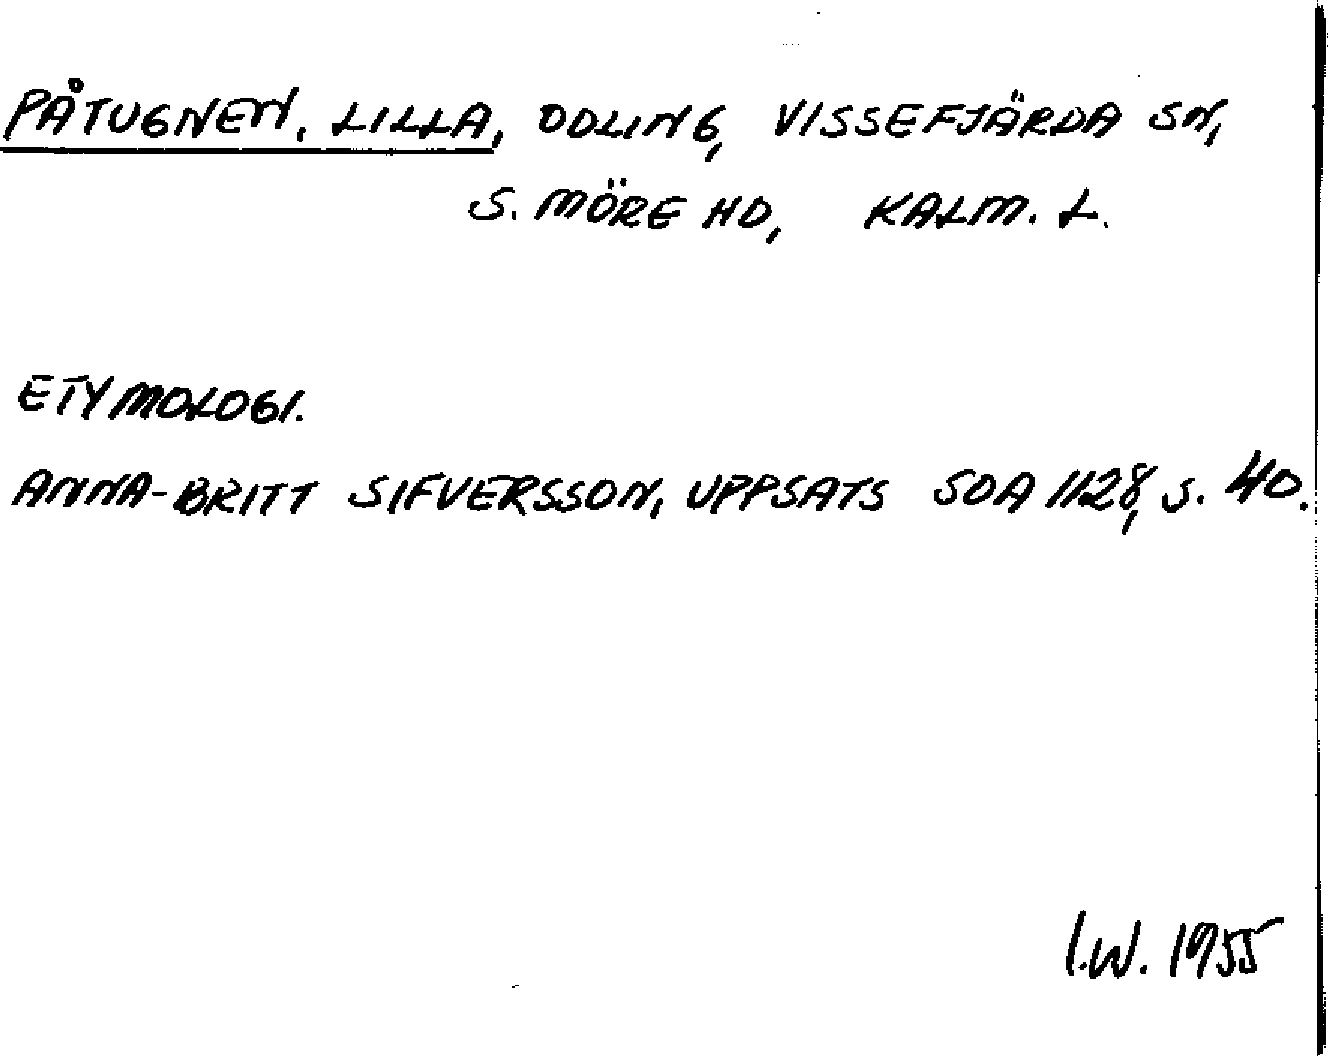 PÅTUGNEN, LILLA, ODLING, VISSEFJÄRDA SN,
S. MÖRE HD, KALM. L.
ETYMOLOGI.
ANNA-BRITT SIFVERSSON, UPPSATS SOA 1128, S. 40.
I.W. 1955